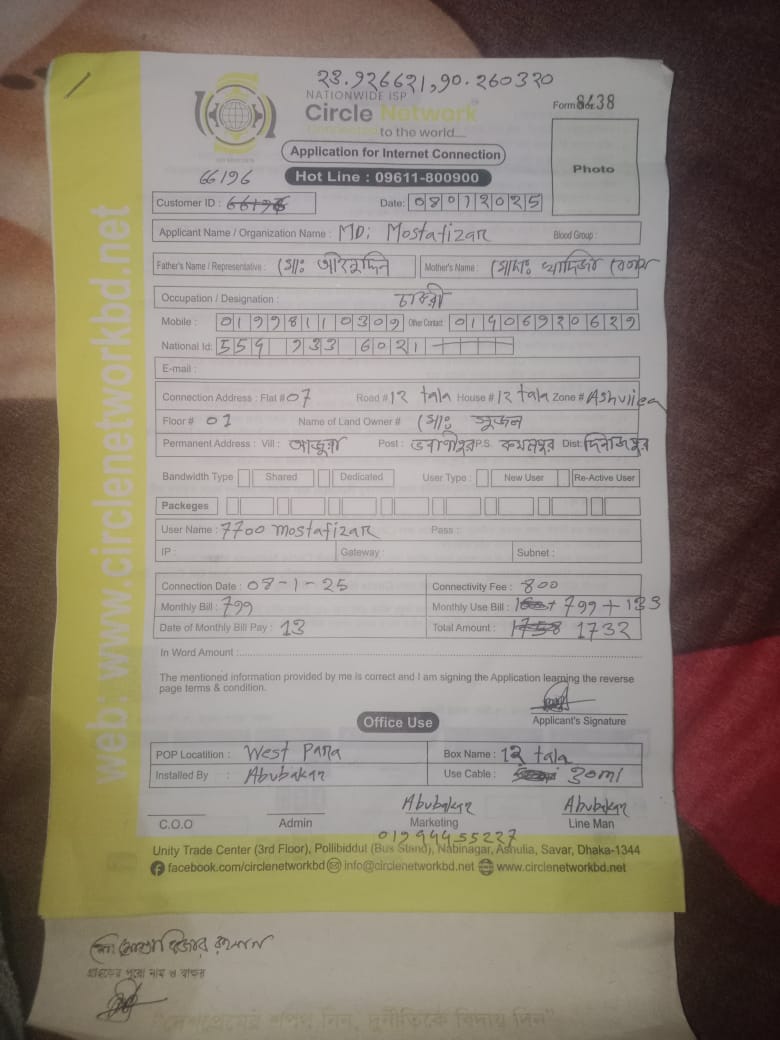 23.926621,90.260320
NATIONWIDE ISP
Circle Network
Connected to the world....
Form No: 8438
Application for Internet Connection
Photo
66196
Hot Line : 09611-800900
Customer ID : 66196 Date: 08012025
Applicant Name / Organization Name : MD: Mostafizar Blood Group :
Father's Name / Representative : Mother's Name : খাদিজা বেগম
Occupation / Designation : চাকরী
Mobile : 01998110309 Other Contact 01406920629
National Id: 559 933 6021
E-mail :
Connection Address : Flat # 07 Road # 12 tala House # 12 tala Zone # Ashuliea
Floor # 01 Name of Land Owner # মোঃ সুজন
Permanent Address : Vill : Post : ভবানীপুর P.S. Dist: দিনাজপুর
Bandwidth Type Shared Dedicated User Type : New User Re-Active User
Packeges
User Name : 7700 mostafizar Pass :
IP : Gateway : Subnet :
Connection Date : 08-1-25 Connectivity Fee : 800
Monthly Bill : 799 Monthly Use Bill : 799 + 133
Date of Monthly Bill Pay : 13 Total Amount : 1732
In Word Amount :
The mentioned information provided by me is correct and I am signing the Application learning the reverse
page terms & condition.
Applicant's Signature
Office Use
POP Locatition : West Para Box Name : 12 tala
Installed By : Abubakar Use Cable : 30ml
Abubakar Abubakar
C.O.O Admin Marketing Line Man
01994455227
Unity Trade Center (3rd Floor), Pollibiddut (Bus Stand), Nabinagar, Ashulia, Savar, Dhaka-1344
facebook.com/circlenetworkbd info@circlenetworkbd.net www.circlenetworkbd.net
web: www.circlenetworkbd.net
গ্রাহকের পুরো নাম ও স্বাক্ষর
"দেশপ্রেমের শপথ নিন, দুর্নীতিকে বিদায় দিন"